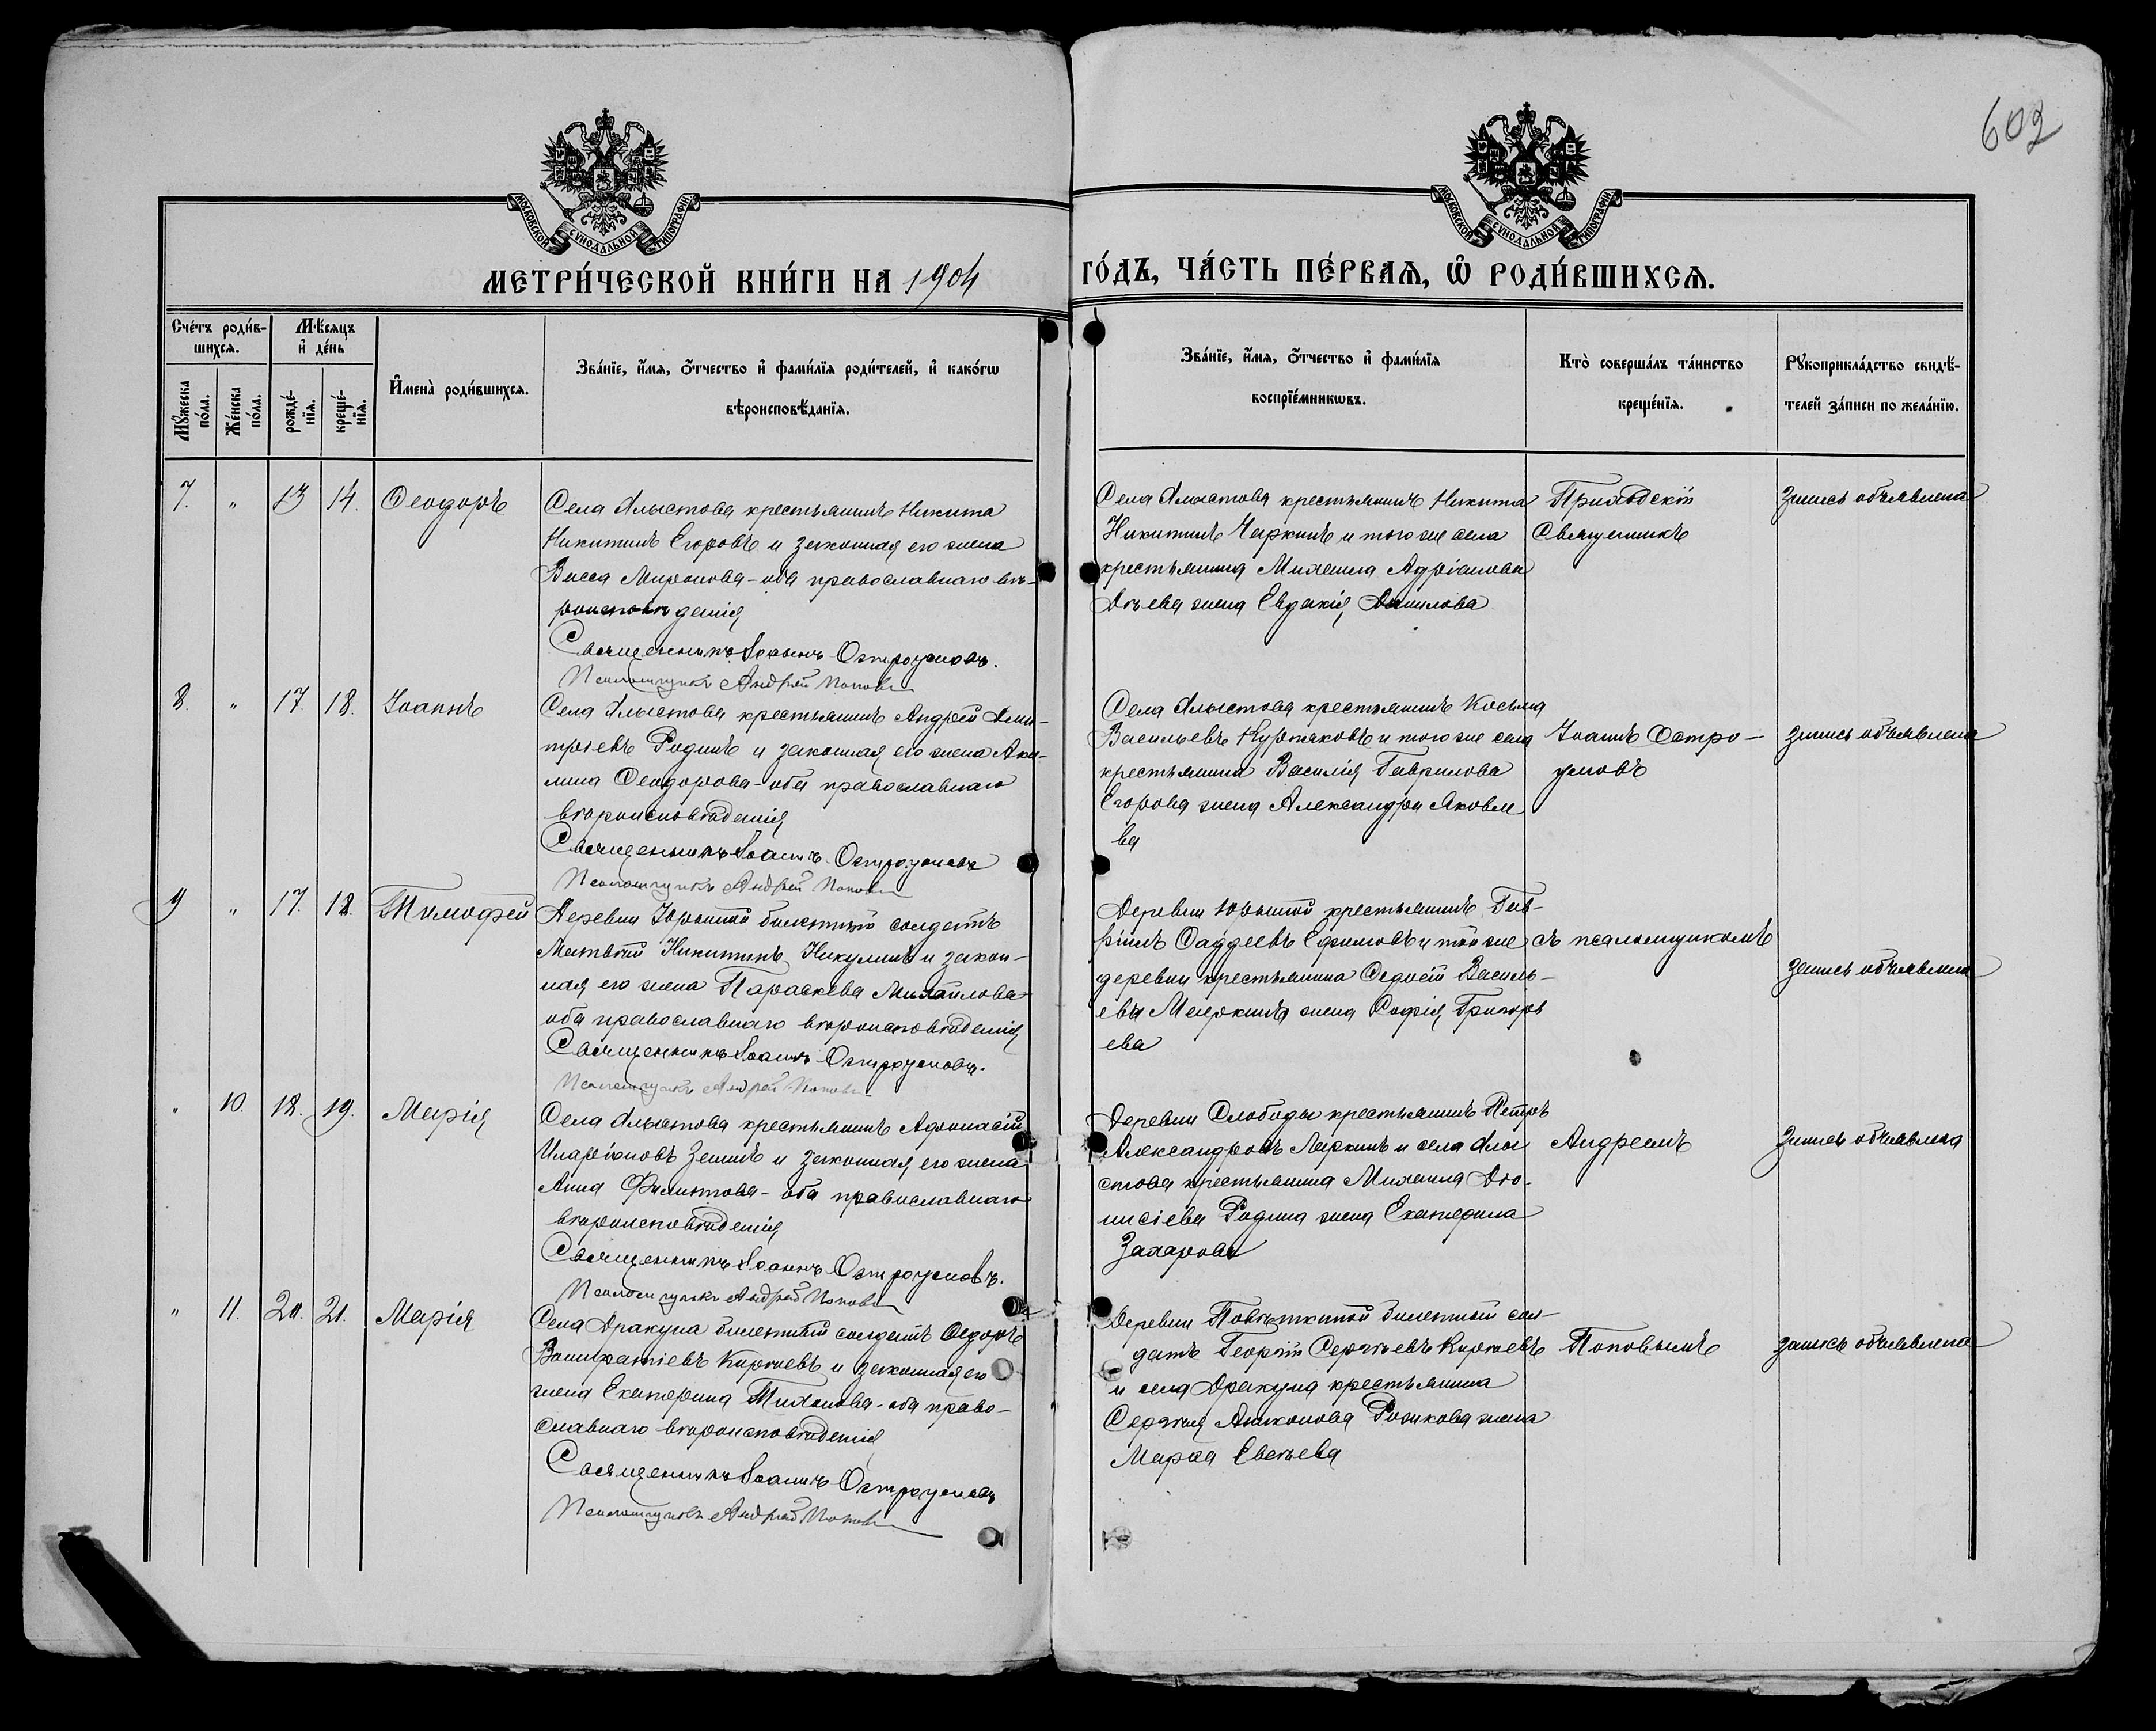 602
МОСКОВСКОЙ СѴНОДАЛЬНОЙ ТИПОГРАФІИ
МОСКОВСКОЙ СѴНОДАЛЬНОЙ ТИПОГРАФІИ
МЕТРИ́ЧЕСКОЙ КНИ́ГИ НА 1904
ГО́ДЪ, ЧА́СТЬ ПЕ́РВАѦ, Ѽ РОДИ́ВШИХСѦ.
Сче́тъ роди́в-
шихсѧ.
Мꙋ́жеска
по́ла.
Же́нска
по́ла.
Мѣ́сѧцъ
и҆ де́нь
рожде́-
нїѧ.
креще́-
нїѧ.
И҆мена̀ роди́вшихсѧ.
Зва́нїе, и҆́мѧ, ѻ҆́тчество и҆ фами́лїѧ роди́телей, и҆ како́гѡ
вѣроисповѣ́данїѧ.
Зва́нїе, и҆́мѧ, ѻ҆́тчество и҆ фами́лїѧ
воспрїе́мникѡвъ.
Кто̀ соверша́лъ та́инство
креще́нїѧ.
Рꙋкоприкла́дство свидѣ́-
телей за́писи по жела́нїю.
7. " 13 14. Ѳеодоръ
Села Алыстова крестьянинъ Никита
Никитинъ Егоровъ и законная его жена
Васса Миронова - оба православнаго вѣ-
роисповѣданія
Священникъ Іоаннъ Остроумовъ.
Псаломщикъ Андрей Поповъ
Села Алыстова крестьянинъ Никита
Никитинъ Чаркинъ и того же села
крестьянина Михаила Адріанова
жена Евдокія Данилова
Приходскій
Священникъ
Запись объявлена
8. " 17. 18. Іоаннъ
Села Алыстова крестьянинъ Андрей Дими-
тріевъ Родинъ и законная его жена Аки-
лина Ѳеодорова - оба православнаго
вѣроисповѣданія
Священникъ Іоаннъ Остроумовъ
Псаломщикъ Андрей Поповъ
Села Алыстова крестьянинъ Косьма
Васильевъ и того же села
крестьянина Василія Гаврилова
Егорова жена Александра Яковле
ва
Іоаннъ Остро-
умовъ
запись объявлена
9 " 17. 18. Тимофей
Деревни билетный солдатъ
Матвѣй Никитинъ Никулинъ и закон-
ная его жена Параскева Михайлова
оба православнаго вѣроисповѣданія
Священникъ Іоаннъ Остроумовъ.
Псаломщикъ Андрей Поповъ
Деревни крестьянинъ Гав-
ріилъ Ѳаддеевъ Ефимовъ и той же
деревни крестьянина Василь-
ева жена Софія Григорь
ева
съ псаломщикомъ
Запись объявлена
" 10. 18. 19. Марія
Села Алыстова крестьянинъ Афонасій
Иларіоновъ Зенинъ и законная его жена
Анна - оба православнаго
вѣроисповѣданія
Священникъ Іоаннъ Остроумовъ.
Псаломщикъ Андрей Поповъ
Деревни Слободы крестьянинъ Петръ
Александровъ Ларкинъ и села Алы
стова крестьянина Михаила Діо-
нисіева Родина жена Екатерина
Захарова
Андреемъ
Запись объявлена
" 11. 20. 21. Марія
Села Дракуна билетный солдатъ Ѳедоръ
Киргиевъ и законная его
жена Екатерина Тихонова - оба право-
славнаго вѣроисповѣданія
Священникъ Іоаннъ Остроумовъ
Псаломщикъ Андрей Поповъ
Деревни билетный сол-
датъ Георгій Сергѣевъ Киргиевъ
и села Дракуна крестьянина
Сергія жена
Марѳа
Поповымъ
запись объявлена